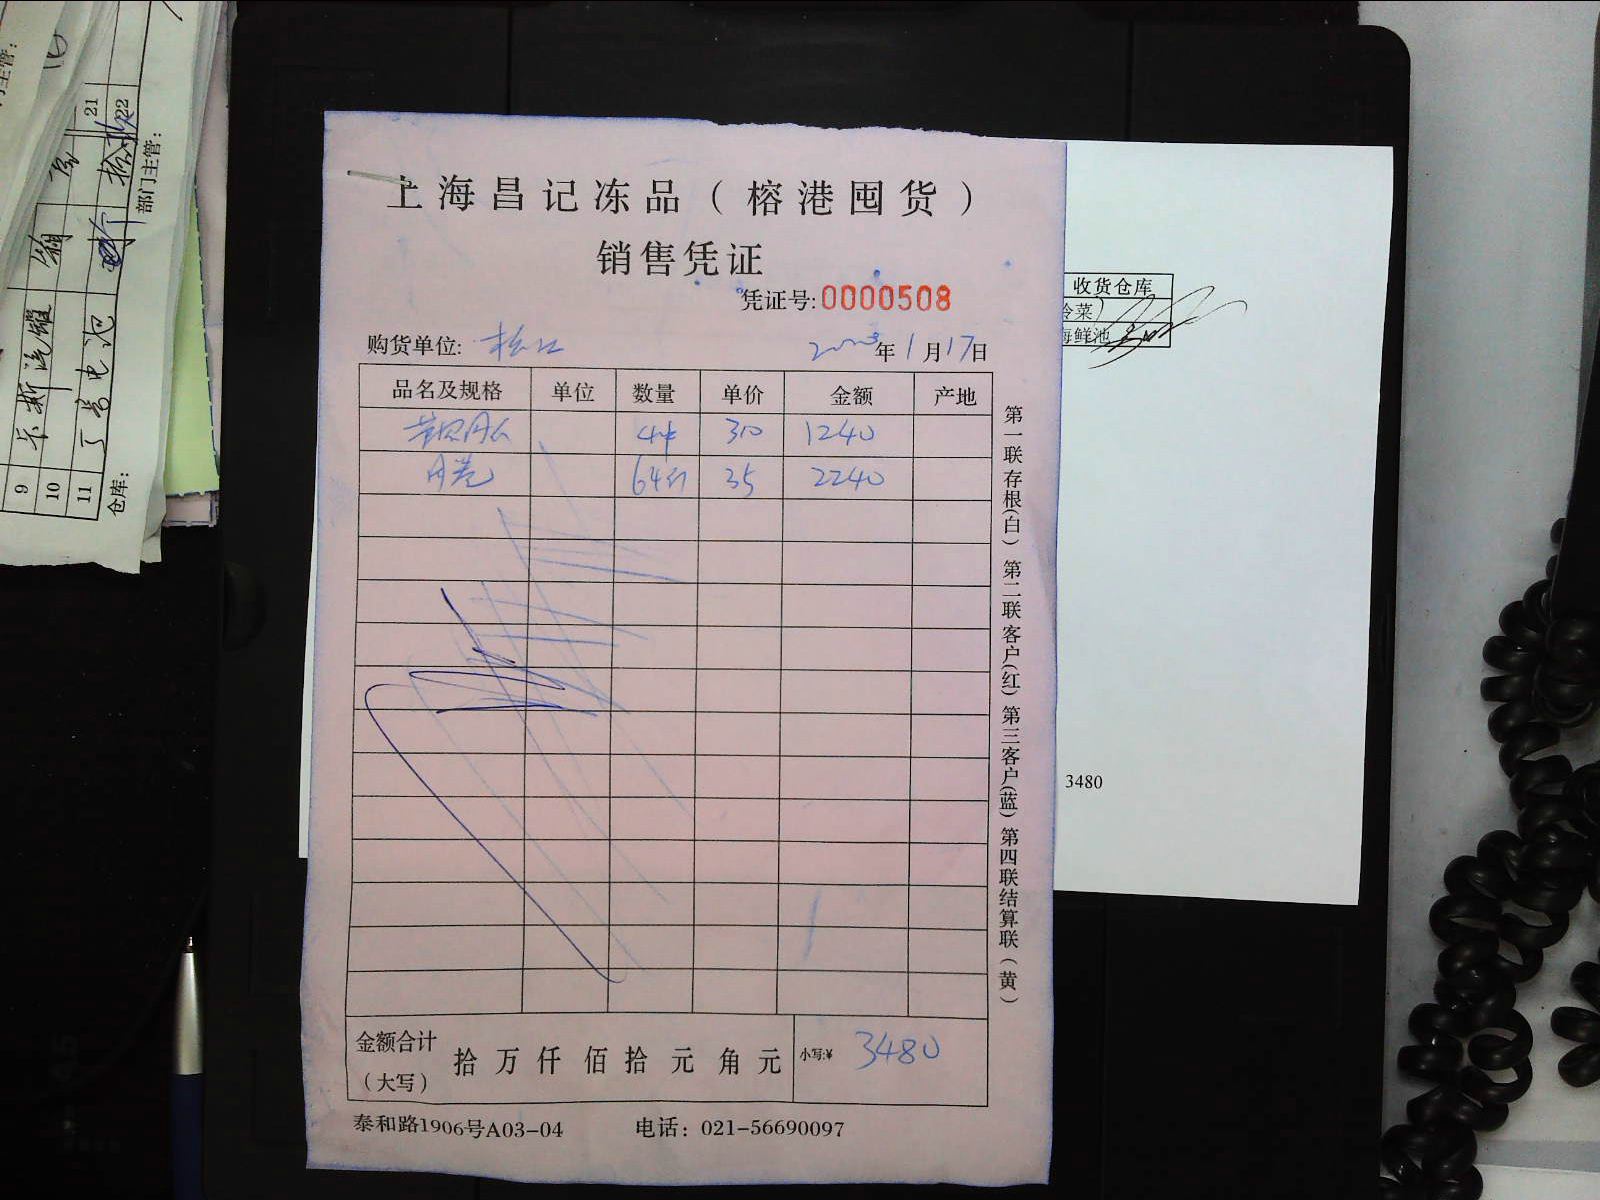 上海昌记冻品（榕港囤货）
销售凭证
凭证号:0000508
购货单位: 松江 2023年1月17日
品名及规格 单位 数量 单价 金额 产地
4件 310 1240
64斤 35 2240
金额合计（大写） 拾 万 仟 佰 拾 元 角 元 小写:¥ 3480
泰和路1906号A03-04 电话：021-56690097
第一联存根(白) 第二联客户(红) 第三客户(蓝) 第四联结算联(黄)
收货仓库
冷菜)
海鲜池
3480
21
22
部门主管：
9 卡斯汽罐
10
11 丁当电池
仓库：